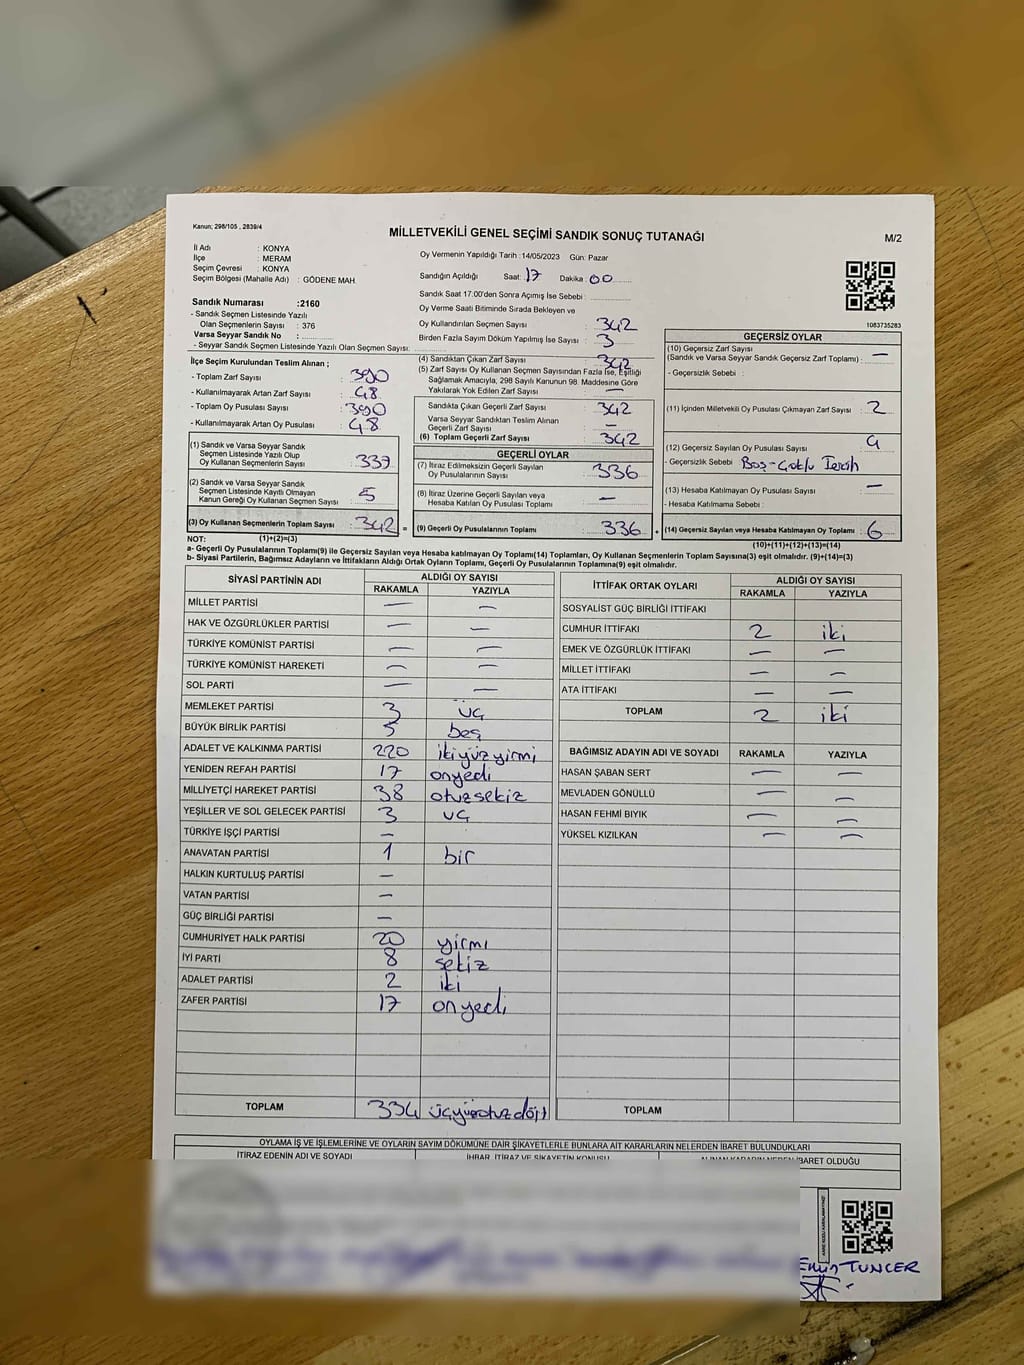 Kanun; 298/105 , 2839/4
MİLLETVEKİLİ GENEL SEÇİMİ SANDIK SONUÇ TUTANAĞI
M/2
İl Adı : KONYA
İlçe : MERAM
Seçim Çevresi : KONYA
Seçim Bölgesi (Mahalle Adı) : GÖDENE MAH.
Oy Vermenin Yapıldığı Tarih : 14/05/2023 Gün: Pazar
Sandığın Açıldığı Saat: 17 Dakika: 00
Sandık Saat 17:00'den Sonra Açımış İse Sebebi :
Oy Verme Saati Bitiminde Sırada Bekleyen ve
Oy Kullandırılan Seçmen Sayısı 342
Birden Fazla Sayım Döküm Yapılmış İse Sayısı : 3
1083735283
Sandık Numarası :2160
- Sandık Seçmen Listesinde Yazılı
Olan Seçmenlerin Sayısı : 376
Varsa Seyyar Sandık No :
- Seyyar Sandık Seçmen Listesinde Yazılı Olan Seçmen Sayısı:
İlçe Seçim Kurulundan Teslim Alınan ;
- Toplam Zarf Sayısı : 390
- Kullanılmayarak Artan Zarf Sayısı : 48
- Toplam Oy Pusulası Sayısı : 390
- Kullanılmayarak Artan Oy Pusulası : 48
(1) Sandık ve Varsa Seyyar Sandık
Seçmen Listesinde Yazılı Olup
Oy Kullanan Seçmenlerin Sayısı : 337
(2) Sandık ve Varsa Seyyar Sandık
Seçmen Listesinde Kayıtlı Olmayan
Kanun Gereği Oy Kullanan Seçmen Sayısı : 5
(3) Oy Kullanan Seçmenlerin Toplam Sayısı : 342 =
(4) Sandıktan Çıkan Zarf Sayısı : 342
(5) Zarf Sayısı Oy Kullanan Seçmen Sayısından Fazla İse, Eşitliği
Sağlamak Amacıyla, 298 Sayılı Kanunun 98. Maddesine Göre
Yakılarak Yok Edilen Zarf Sayısı : —
Sandıkta Çıkan Geçerli Zarf Sayısı : 342
Varsa Seyyar Sandıktan Teslim Alınan
Geçerli Zarf Sayısı : —
(6) Toplam Geçerli Zarf Sayısı : 342
GEÇERLİ OYLAR
(7) İtiraz Edilmeksizin Geçerli Sayılan
Oy Pusulalarının Sayısı : 336
(8) İtiraz Üzerine Geçerli Sayılan veya
Hesaba Katılan Oy Pusulası Toplamı : —
(9) Geçerli Oy Pusulalarının Toplamı 336
GEÇERSİZ OYLAR
(10) Geçersiz Zarf Sayısı
(Sandık ve Varsa Seyyar Sandık Geçersiz Zarf Toplamı) : —
- Geçersizlik Sebebi :
(11) İçinden Milletvekili Oy Pusulası Çıkmayan Zarf Sayısı : 2
(12) Geçersiz Sayılan Oy Pusulası Sayısı : 4
- Geçersizlik Sebebi : Boş-Çoklu Tercih
(13) Hesaba Katılmayan Oy Pusulası Sayısı : —
- Hesaba Katılmama Sebebi :
(14) Geçersiz Sayılan veya Hesaba Katılmayan Oy Toplamı : 6
NOT: (1)+(2)=(3)
(10)+(11)+(12)+(13)=(14)
a- Geçerli Oy Pusulalarının Toplamı(9) ile Geçersiz Sayılan veya Hesaba katılmayan Oy Toplamı(14) Toplamları, Oy Kullanan Seçmenlerin Toplam Sayısına(3) eşit olmalıdır. (9)+(14)=(3)
b- Siyasi Partilerin, Bağımsız Adayların ve İttifakların Aldığı Ortak Oyların Toplamı, Geçerli Oy Pusulalarının Toplamına(9) eşit olmalıdır.
SİYASİ PARTİNİN ADI ALDIĞI OY SAYISI
RAKAMLA YAZIYLA
MİLLET PARTİSİ — —
HAK VE ÖZGÜRLÜKLER PARTİSİ — —
TÜRKİYE KOMÜNİST PARTİSİ — —
TÜRKİYE KOMÜNİST HAREKETİ — —
SOL PARTİ — —
MEMLEKET PARTİSİ 3 üç
BÜYÜK BİRLİK PARTİSİ 5 beş
ADALET VE KALKINMA PARTİSİ 220 ikiyüzyirmi
YENİDEN REFAH PARTİSİ 17 onyedi
MİLLİYETÇİ HAREKET PARTİSİ 38 otuzsekiz
YEŞİLLER VE SOL GELECEK PARTİSİ 3 üç
TÜRKİYE İŞÇİ PARTİSİ —
ANAVATAN PARTİSİ 1 bir
HALKIN KURTULUŞ PARTİSİ —
VATAN PARTİSİ —
GÜÇ BİRLİĞİ PARTİSİ —
CUMHURİYET HALK PARTİSİ 20 yirmi
İYİ PARTİ 8 sekiz
ADALET PARTİSİ 2 iki
ZAFER PARTİSİ 17 onyedi
TOPLAM 334 üçyüzotuzdört
İTTİFAK ORTAK OYLARI ALDIĞI OY SAYISI
RAKAMLA YAZIYLA
SOSYALİST GÜÇ BİRLİĞİ İTTİFAKI
CUMHUR İTTİFAKI 2 iki
EMEK VE ÖZGÜRLÜK İTTİFAKI — —
MİLLET İTTİFAKI — —
ATA İTTİFAKI — —
TOPLAM 2 iki
BAĞIMSIZ ADAYIN ADI VE SOYADI RAKAMLA YAZIYLA
HASAN ŞABAN SERT — —
MEVLADEN GÖNÜLLÜ — —
HASAN FEHMİ BIYIK — —
YÜKSEL KIZILKAN — —
TOPLAM
OYLAMA İŞ VE İŞLEMLERİNE VE OYLARIN SAYIM DÖKÜMÜNE DAİR ŞİKAYETLERLE BUNLARA AİT KARARLARIN NELERDEN İBARET BULUNDUKLARI
İTİRAZ EDENİN ADI VE SOYADI İHBAR, İTİRAZ VE ŞİKAYETİN KONUSU ALINAN KARARIN NEDEN İBARET OLDUĞU
TUNCER